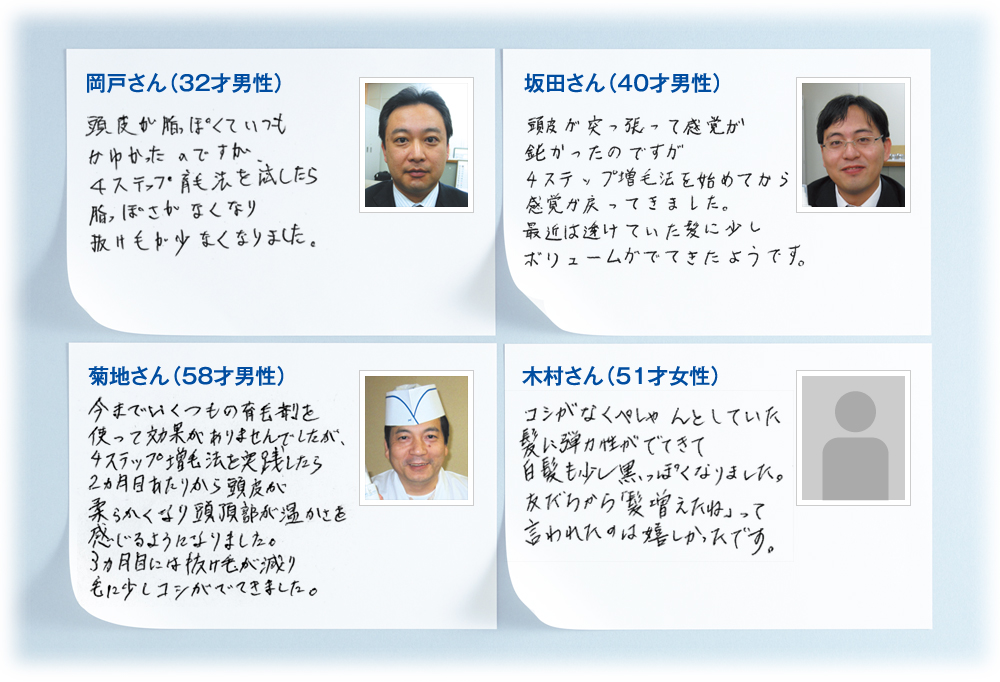 岡戸さん（32才男性）
頭皮が脂っぽくていつも
かゆかったのですが、
4ステップ育毛法を試したら
脂っぽさがなくなり
抜け毛が少なくなりました。
坂田さん（40才男性）
頭皮が突っ張って感覚が
鈍かったのですが
4ステップ増毛法を始めてから
感覚が戻ってきました。
最近は透けていた髪に少し
ボリュームがでてきたようです。
菊地さん（58才男性）
今までいくつもの育毛剤を
使って効果がありませんでしたが、
4ステップ増毛法を実践したら
2ヵ月目あたりから頭皮が
柔らかくなり頭頂部が温かさを
感じるようになりました。
3ヵ月目には抜け毛が減り
毛に少しコシがでてきました。
木村さん（51才女性）
コシがなくぺしゃんとしていた
髪に弾力性がでてきて
白髪も少し黒っぽくなりました。
友だちから「髪増えたね」って
言われたのは嬉しかったです。